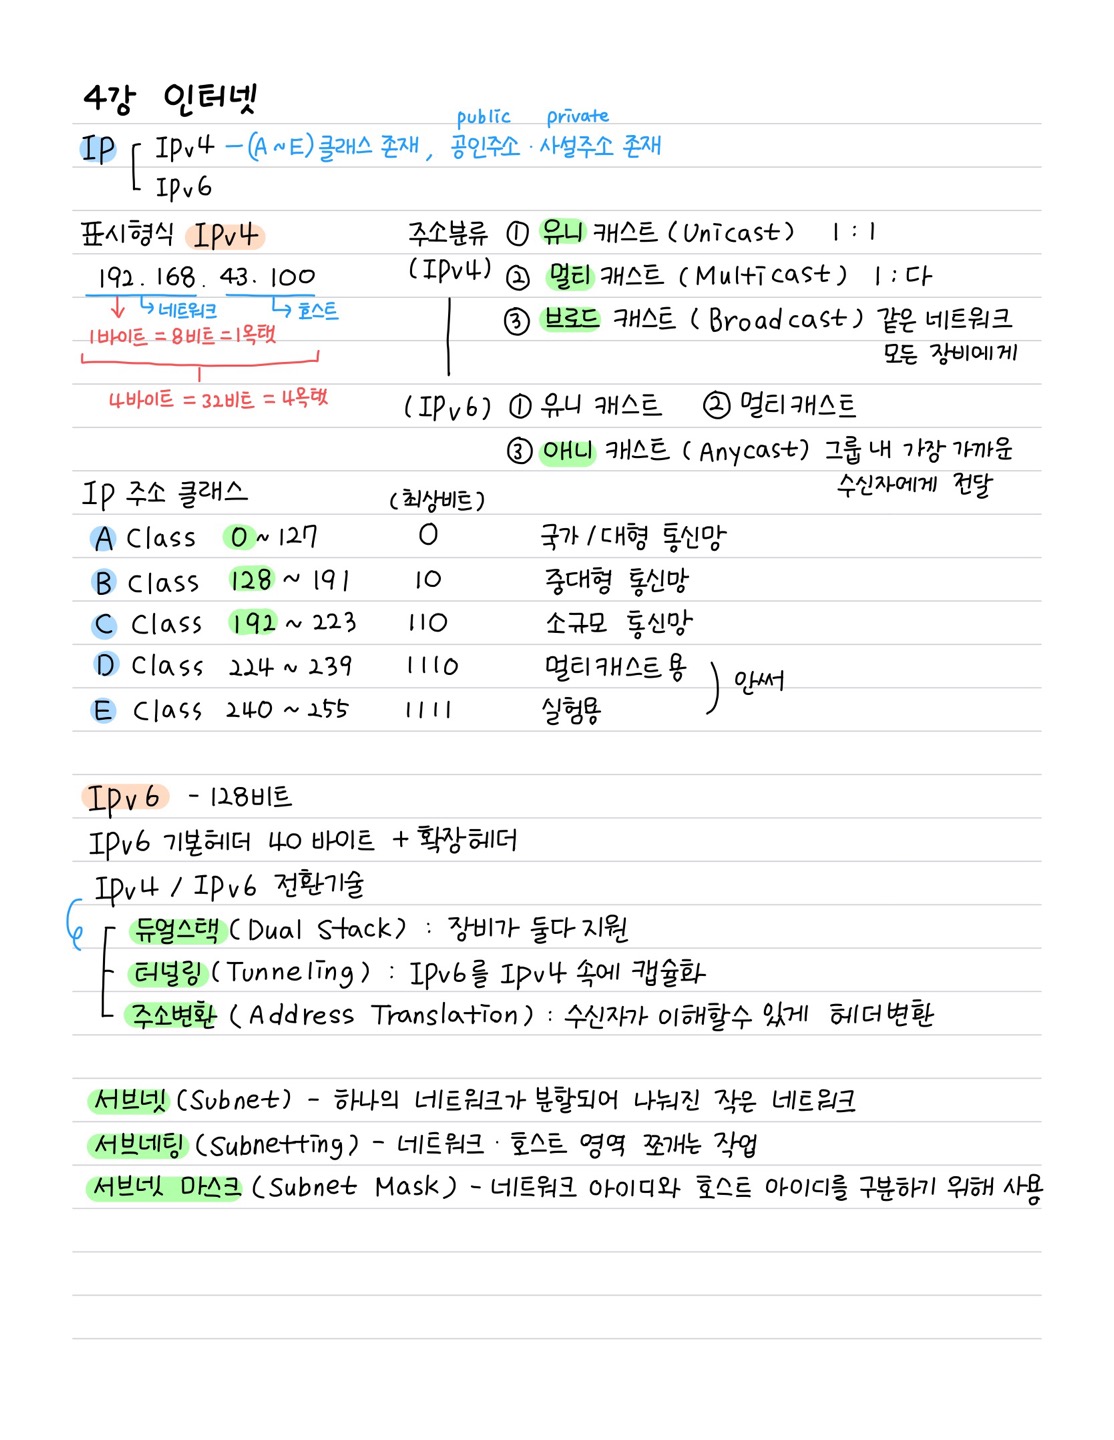 4강 인터넷
public private
IP IPv4 - (A~E)클래스 존재, 공인주소·사설주소 존재
IPv6
표시형식 IPv4
192.168.43.100
네트워크 호스트
1바이트 = 8비트 = 1옥탯
4바이트 = 32비트 = 4옥탯
주소분류 ① 유니 캐스트 (Unicast) 1 : 1
(IPv4) ② 멀티 캐스트 (Multicast) 1 : 다
③ 브로드 캐스트 (Broadcast) 같은 네트워크
모든 장비에게
(IPv6) ① 유니 캐스트 ② 멀티캐스트
③ 애니 캐스트 (Anycast) 그룹 내 가장 가까운
수신자에게 전달
IP 주소 클래스 (최상비트)
A Class 0 ~ 127 0 국가 / 대형 통신망
B Class 128 ~ 191 10 중대형 통신망
C Class 192 ~ 223 110 소규모 통신망
D Class 224 ~ 239 1110 멀티캐스트용
E Class 240 ~ 255 1111 실험용
안써
IPv6 - 128비트
IPv6 기본헤더 40 바이트 + 확장헤더
IPv4 / IPv6 전환기술
듀얼스택 (Dual Stack) : 장비가 둘다 지원
터널링 (Tunneling) : IPv6를 IPv4 속에 캡슐화
주소변환 (Address Translation) : 수신자가 이해할수 있게 헤더변환
서브넷 (Subnet) - 하나의 네트워크가 분할되어 나눠진 작은 네트워크
서브네팅 (Subnetting) - 네트워크·호스트 영역 쪼개는 작업
서브넷 마스크 (Subnet Mask) - 네트워크 아이디와 호스트 아이디를 구분하기 위해 사용